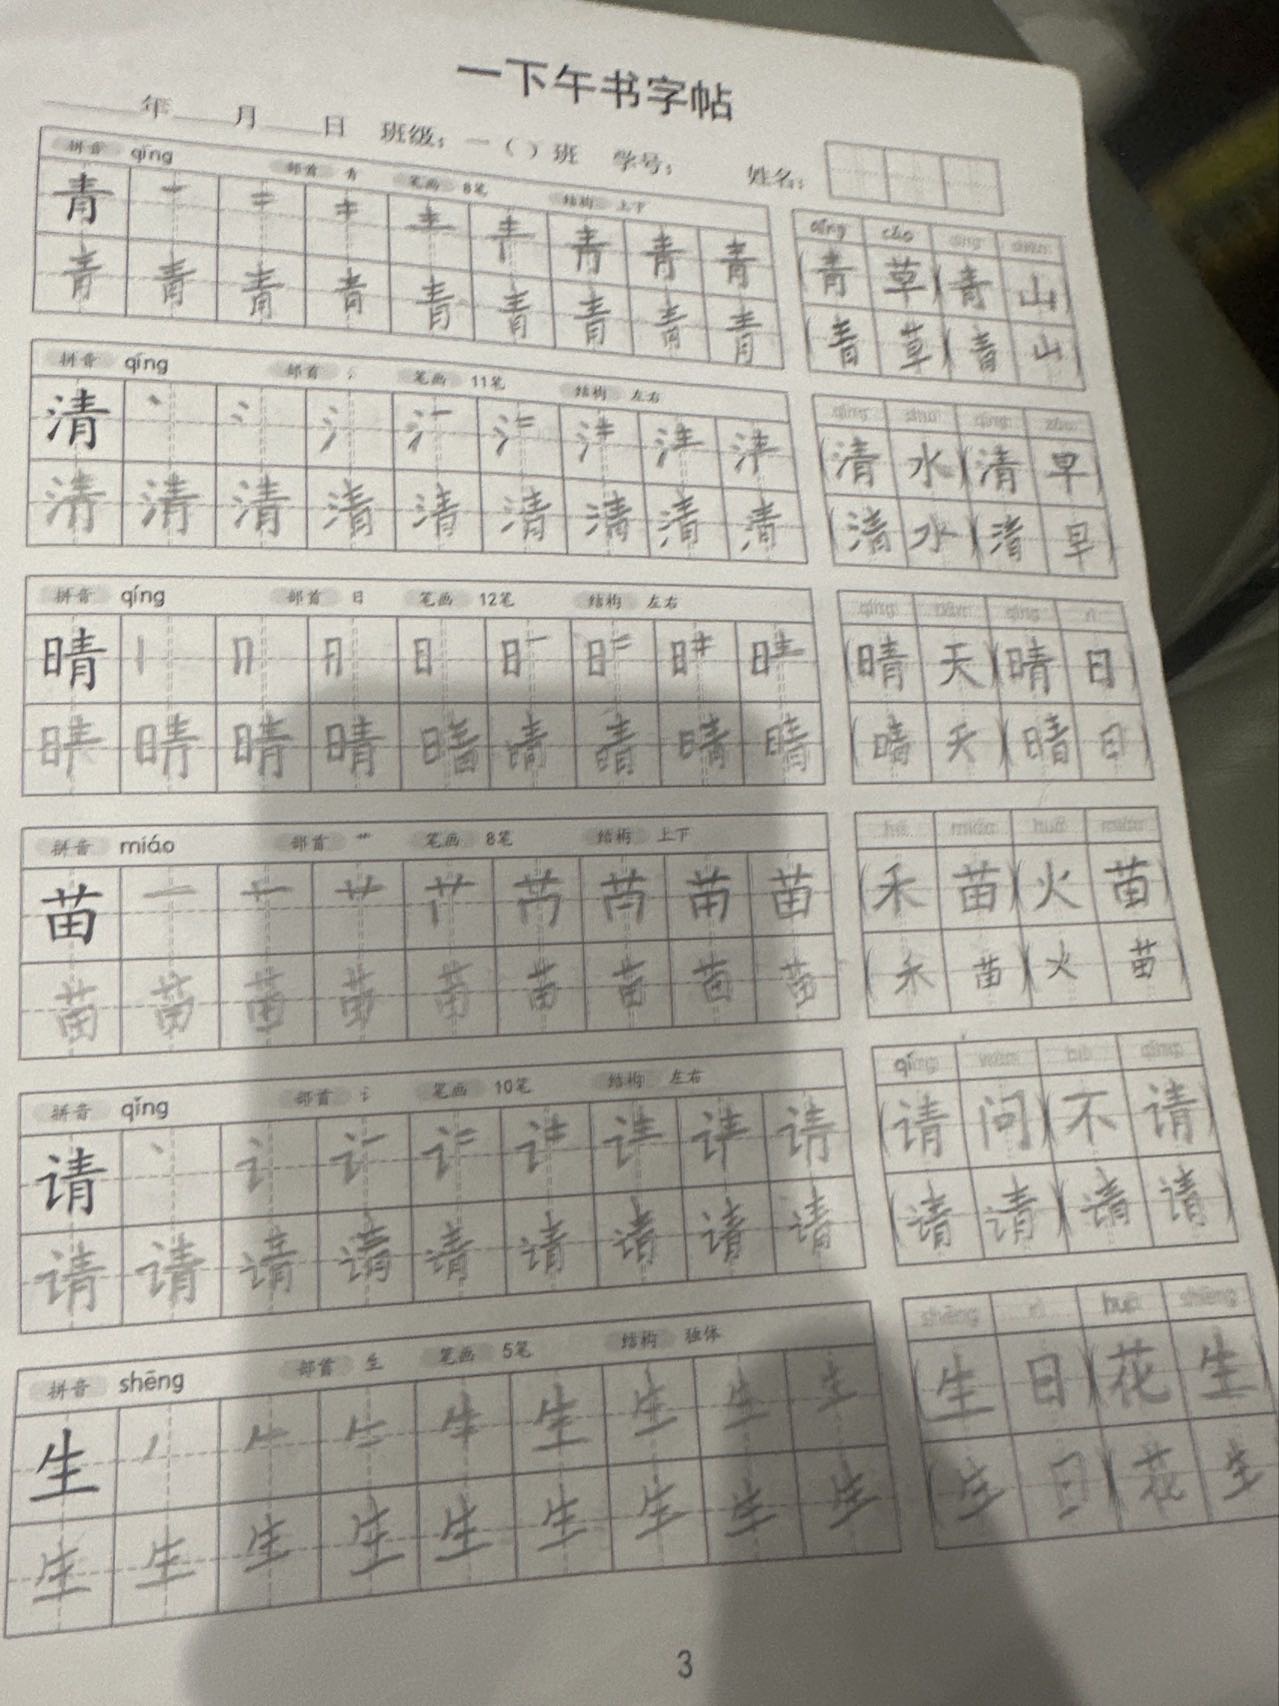 一下午书字帖
年 月 日 班级：一（ ）班 学号： 姓名：
拼音 qīng 部首 青 笔画 8笔 结构 上下
青 一 二 キ 龶 青 青 青
青 青 青 青 青 青 青 青 青
qīng cǎo
（青 草）（青 山）
（青 草）（青 山）
拼音 qíng 部首 氵 笔画 11笔 结构 左右
清 丶 冫 氵
清 清 清 清 清 清 清 清 清
（清 水）（清 早）
（清 水）（清 早）
拼音 qíng 部首 日 笔画 12笔 结构 左右
晴 丨 冂 日 日
晴 晴 晴 晴 晴 晴 晴 晴
（晴 天）（晴 日）
（晴 天）（晴 日）
拼音 miáo 部首 艹 笔画 8笔 结构 上下
苗 一 十 艹 苗
苗 苗 苗 苗 苗 苗 苗 苗 苗
（禾 苗）（火 苗）
（禾 苗）（火 苗）
拼音 qǐng 部首 讠 笔画 10笔 结构 左右
请 丶 讠 请
请 请 请 请 请 请 请 请 请
（请 问）（不 请）
（请 请）（请 请）
拼音 shēng 部首 生 笔画 5笔 结构 独体
生 丿 𠂉 生 生 生 生
生 生 生 生 生 生 生 生 生
shēng rì huā shēng
（生 日）（花 生）
（生 日）（花 生
3